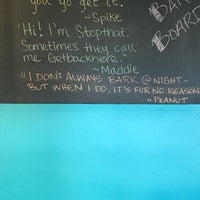 you go get it.
~Spike
"Hi! I'm Stopthat.
Sometimes they call
me Getbackhere."
~Maddie
"I DON'T ALWAYS BARK @ NIGHT-
BUT WHEN I DO, IT'S FOR NO REASON
~PEANUT
BARK
BOARD